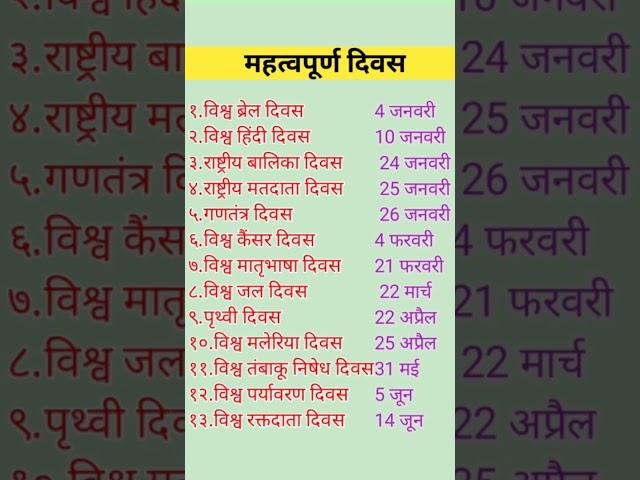 महत्वपूर्ण दिवस
१.विश्व ब्रेल दिवस 4 जनवरी
२.विश्व हिंदी दिवस 10 जनवरी
३.राष्ट्रीय बालिका दिवस 24 जनवरी
४.राष्ट्रीय मतदाता दिवस 25 जनवरी
५.गणतंत्र दिवस 26 जनवरी
६.विश्व कैंसर दिवस 4 फरवरी
७.विश्व मातृभाषा दिवस 21 फरवरी
८.विश्व जल दिवस 22 मार्च
९.पृथ्वी दिवस 22 अप्रैल
१०.विश्व मलेरिया दिवस 25 अप्रैल
११.विश्व तंबाकू निषेध दिवस 31 मई
१२.विश्व पर्यावरण दिवस 5 जून
१३.विश्व रक्तदाता दिवस 14 जून